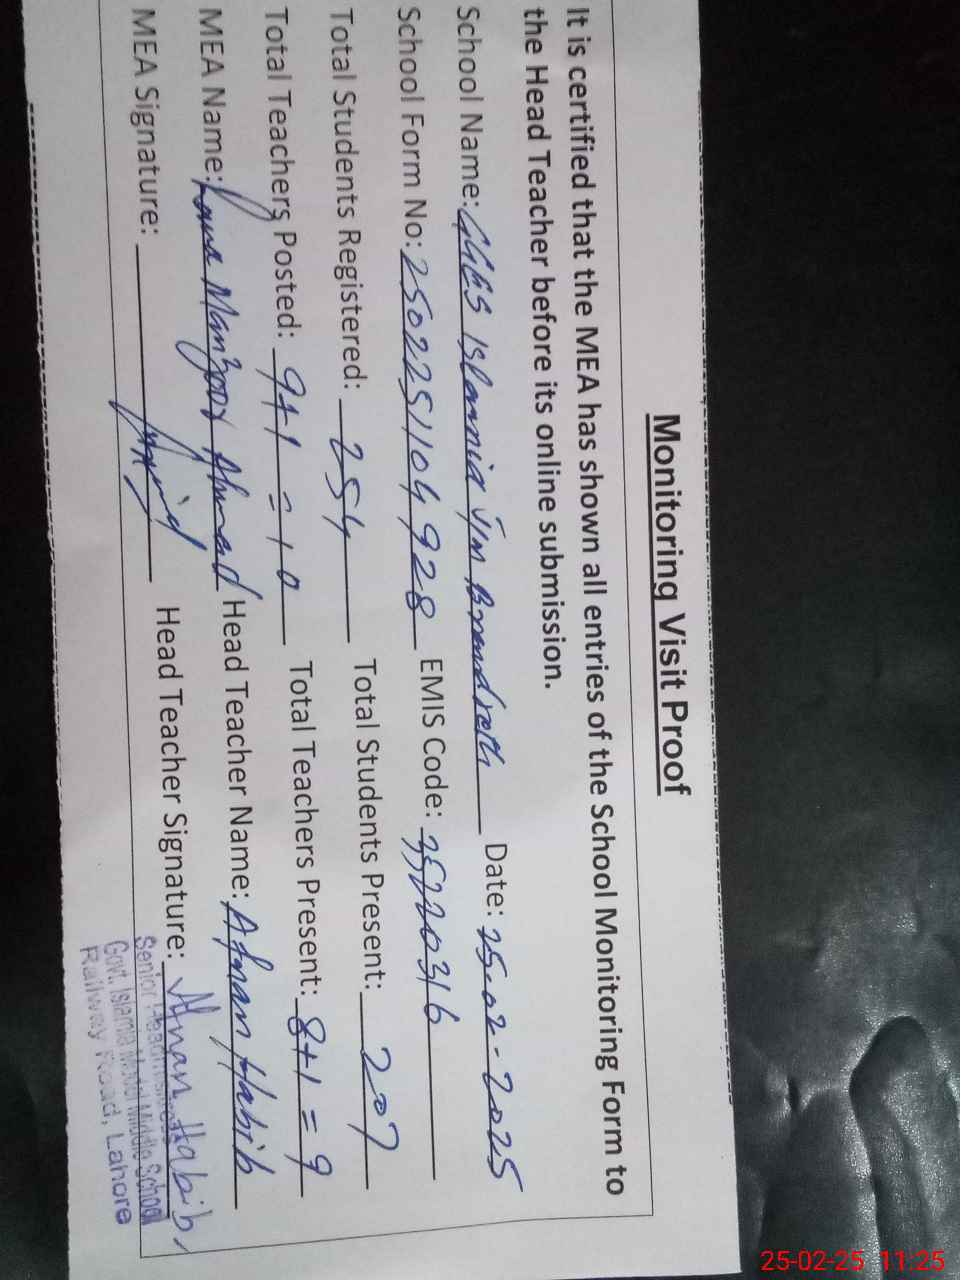 Monitoring Visit Proof
It is certified that the MEA has shown all entries of the School Monitoring Form to
the Head Teacher before its online submission.
School Name: GGES Islamia V/M Brandreth Date: 25-02-2025
School Form No: 2502251104928 EMIS Code: 35220316
Total Students Registered: 254 Total Students Present: 207
Total Teachers Posted: 9+1 = 10 Total Teachers Present: 8+1 = 9
MEA Name: Manzoor Ahmad Head Teacher Name: Adnan Habib
MEA Signature: Head Teacher Signature: Adnan Habib
Senior Headmistress
Govt. Islamia Model Middle School
Railway Road, Lahore
25-02-25 11:25